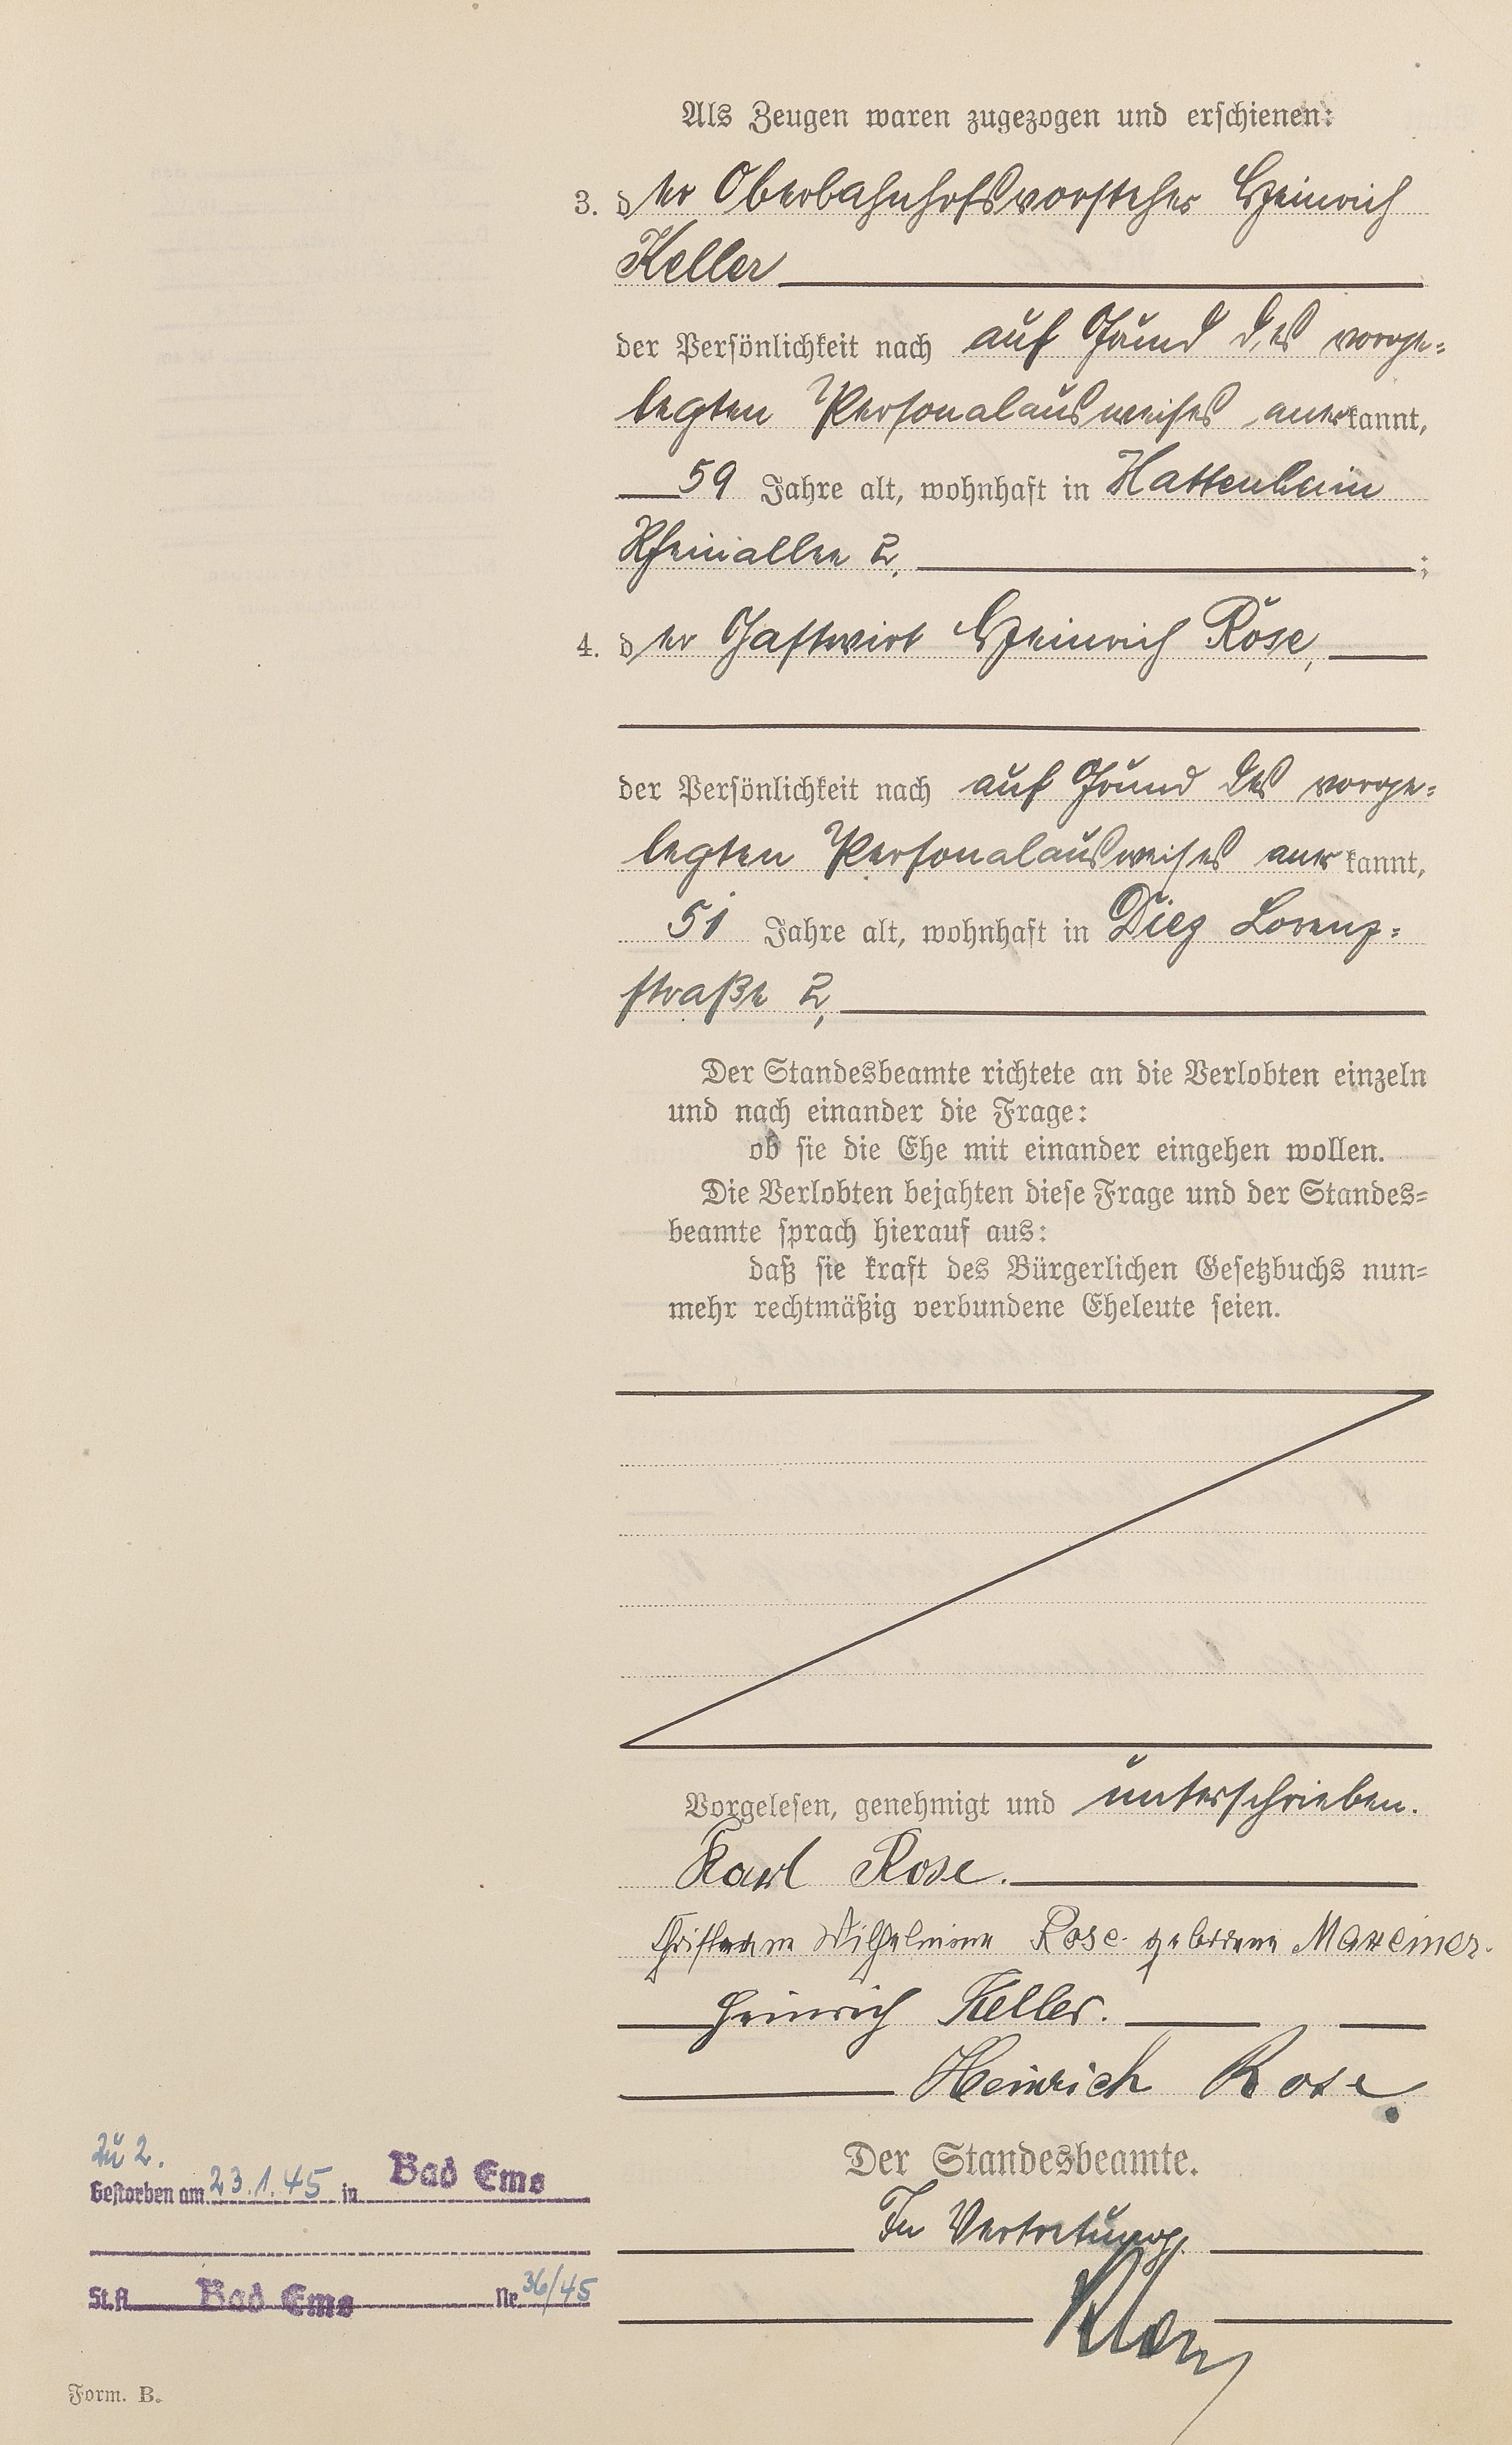 Als Zeugen waren zugezogen und erschienen:
3. der Oberbahnhofsvorsteher Heinrich
Keller
der Persönlichkeit nach auf Grund des vorge=
legten Personalausweises anerkannt,
59 Jahre alt, wohnhaft in Hattenheim
Rheinallee 2, ;
4. der Gastwirt Heinrich Rose,
der Persönlichkeit nach auf Grund des vorge=
legten Personalausweises anerkannt,
51 Jahre alt, wohnhaft in Diez Lorenz=
straße 2,
Der Standesbeamte richtete an die Verlobten einzeln
und nach einander die Frage:
ob sie die Ehe mit einander eingehen wollen.
Die Verlobten bejahten diese Frage und der Standes=
beamte sprach hierauf aus:
daß sie kraft des Bürgerlichen Gesetzbuchs nun=
mehr rechtmäßig verbundene Eheleute seien.
Vorgelesen, genehmigt und unterschrieben.
Karl Rose.
Wilhelmine Rose geborene Maxeiner.
Heinrich Keller.
Heinrich Rose
Der Standesbeamte.
In Vertretung
zu 2.
Gestorben am 23.1.45 in Bad Ems
St.A. Bad Ems Nr 36/45
Form. B.